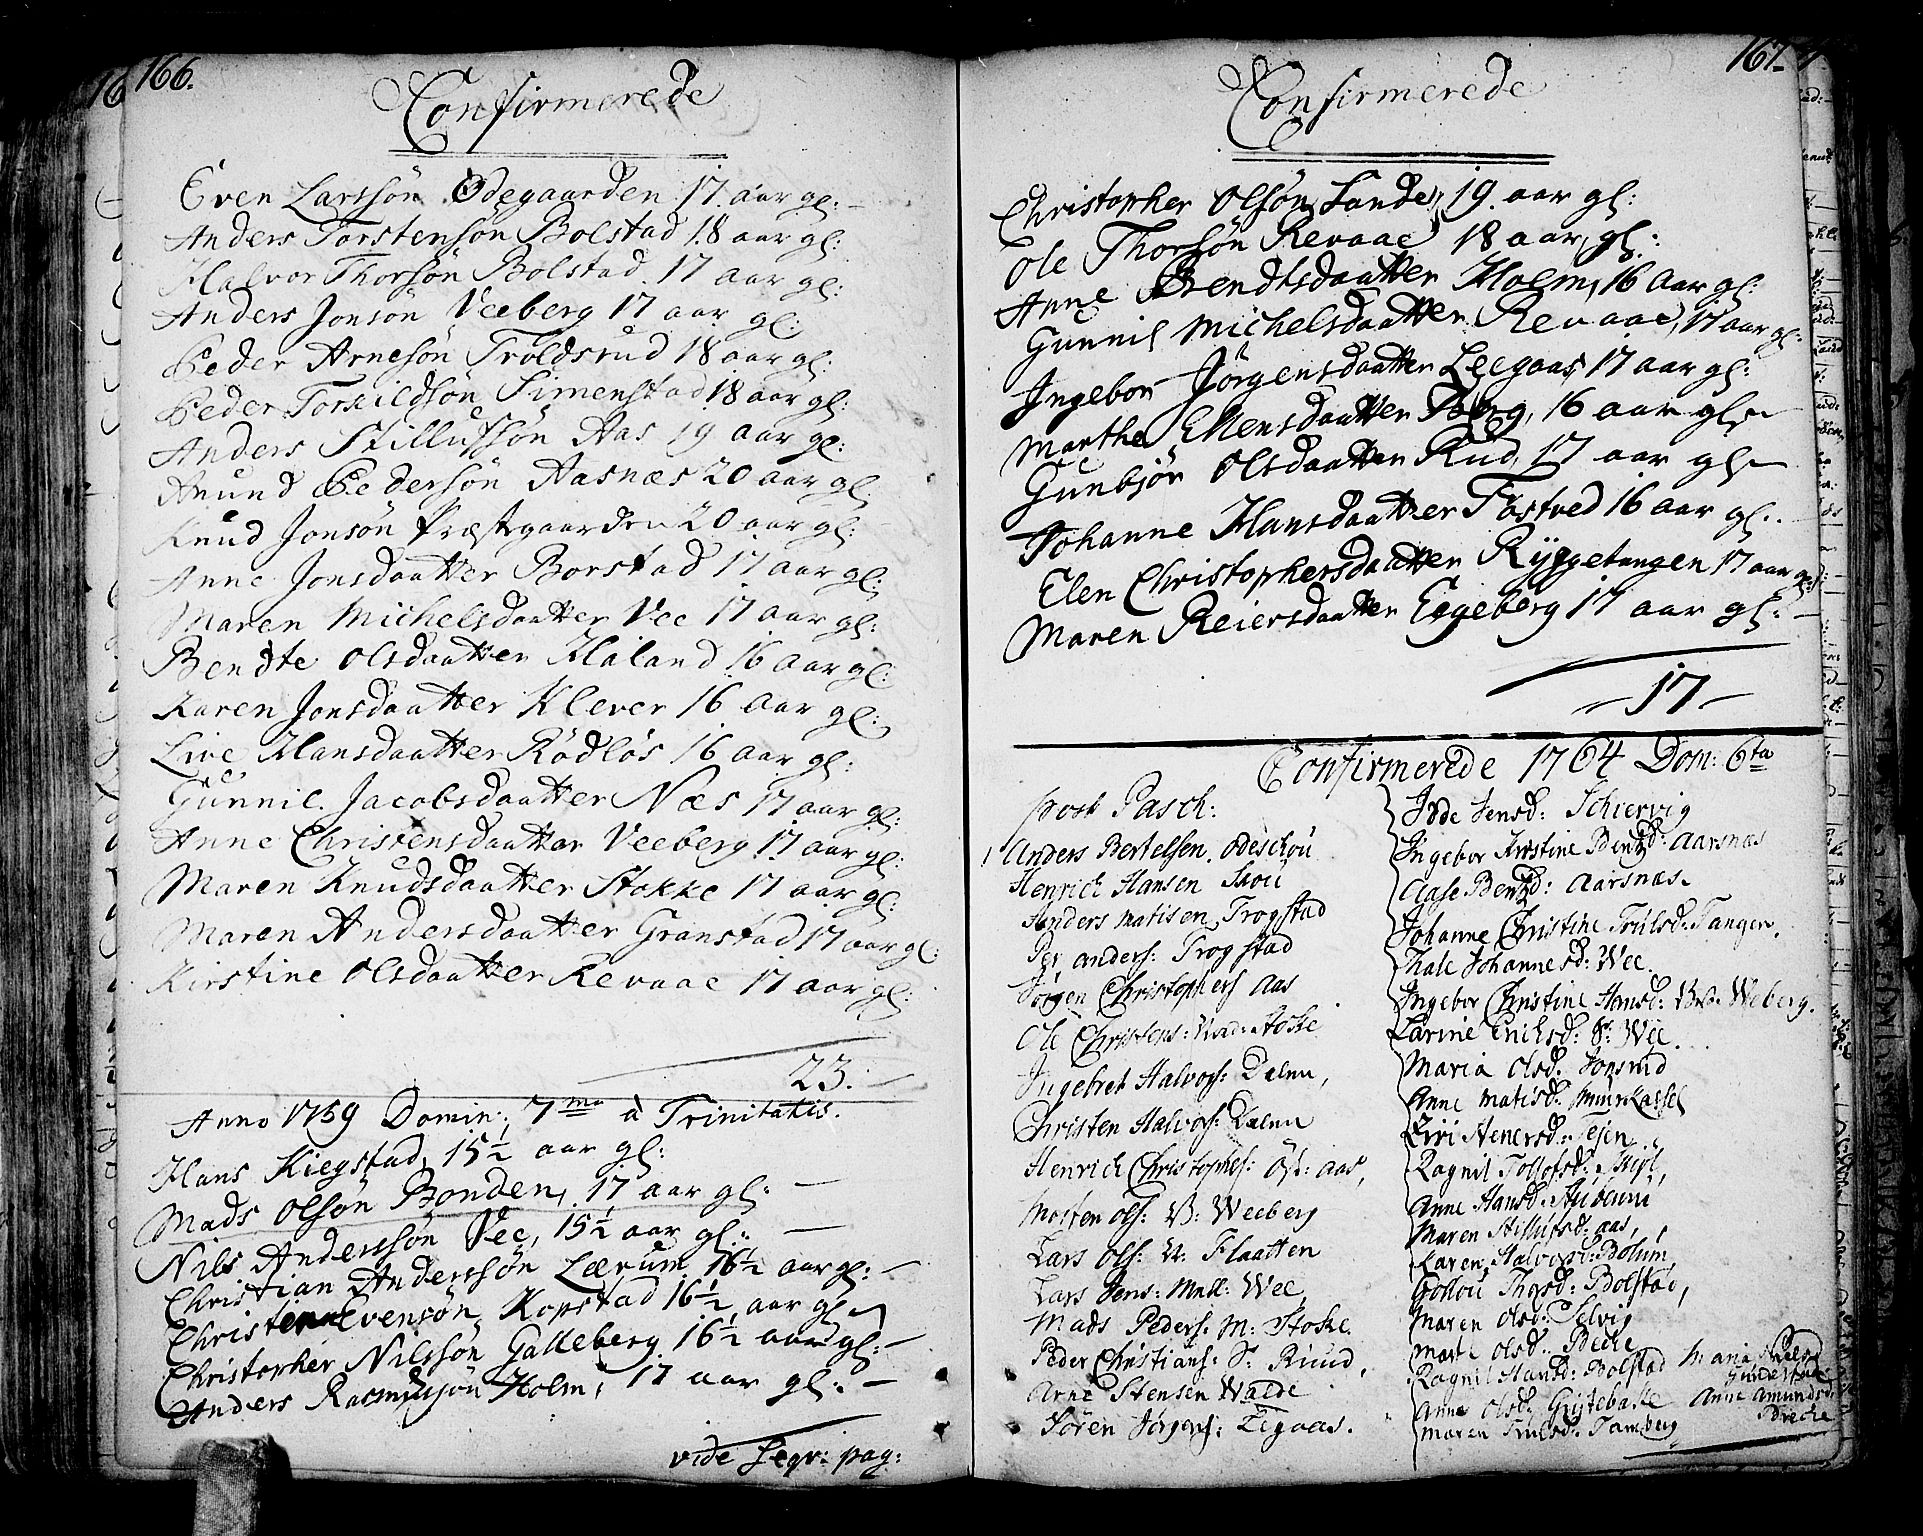 166.
Confirmerede
Even Larssøn Ødegaarden 17. aar gl: -
Anders Torstensøn Bolstad 18 aar gl:
Halvor Thorsøn Bolstad. 17 aar gl:
Anders Jonsøn Veeberg 17 aar gl:
Peder Arnesøn Troldsrud 18 aar gl:
Peder Torkildsøn Simenstad 18 aar gl:
Anders Stillufsøn Aas 19 aar gl:
Anund Pedersøn Aasnæs 20 aar gl.
Knud Jonsøn Præstgaarden 20 aar gl:
Anne Jonsdaatter Borstad 17 aar gl:
Maren Michelsdaatter Vee 17 aar gl:
Bendte Olsdaatter Haland 16 aar gl:
Karen Jonsdaatter Klever 16 aar gl:
Live Hansdaatter Rødløs 16 aar gl:
Gunnil. Jacobsdaatter Næs 17 aar gl:
Anne Christensdaatter Veeberg 17 aar gl:
Maren Knudsdaatter Stokke 17 aar gl:
Maren Andersdaatter Granstad 17 aar gl:
Kirstine Olsdaatter Revaae 17 aar gl:
23.
Anno 1759 Domin: 7ma à Trinitatis.
Hans Kiegstad, 15½ aar gl:
Mads Olsøn Bonden, 17 aar gl: -
Nils Anderssøn Vee, 15½ aar gl: -
Christian Anderssøn Lærum 16½ aar gl: -
Christen Evensøn, Kopstad 16½ aar gl
Christopher Nilssøn Galleberg 16½ aar gl: -
Anders Rasmussøn Holm, 17 aar gl: -
vide seqv: pag:
167.
Confirmerede
Christopher Olsøn Sande, 19. aar gl:
Ole Thorsøn Revaae 18 aar gl:
Anne Bendtsdaatter Holm, 16 aar gl:
Gunnil Michelsdaatter Revaae, 17 aar gl:
Ingebor Jørgensdaatter Leegaas 17 aar gl:
Marthe Ellensdaatter Berg, 16 aar gl
Gunbjør Olsdaatter Rud, 17 aar gl
Johanne Hansdaatter Tostved 16 aar gl:
Elen Christophersdaatter Ryggetangen 17 aar gl:
Maren Reiersdaatter Eegeberg 17 aar gl: -
- 17 -
Confirmerede 1764 Dom: 6ta
post Pasch:
Anders Bertelsen. Odeschou
Henrich Hansen Skou
Anders Matisen Trogstad
Per Anders: Trogstad
Jørgen Christophers Aas
Ole Christens: Stokke
Ingebret Halvors: Dalen,
Christen Halvors: Dalen
Henrich Christophs: Øst: Aas,
Morten Ols: V: Weeberg
Lars Ols: N: Flaatten
Lars Jens: Wee
Mads Peders: M: Stoke
Peder Christians: S: Ruud,
Arne Stensen Walde
Søren Jørgens: Legaas.
Jens: Schiervig
Ingebor Kirstine Bentzd: Aarsnæs
Aase Bentzd: Aarsnæs.
Johanne Christine Trulsd: Tangen.
Thale Johannesd: Wee.
Ingebor Christine Hansd: Weberg.
Larine Erichsd: S: Wee.
Maria Olsd: Jonsrud
Anne Matisd: Murkassel
Live Stenersd: Tejen
Ragnil Tollofsd:
Anne Hansd:
Maren Stillufsd: Aas,
Karen Halvorsd: Bolum,
Thorsd: Bolstad,
Maren Olsd: Selvig
Marte Olsd: Beche
Ragnil Hansd: Bolstad
Anne Olsd: Grytebake
Maren Trulsd: Tamberg
Maria
Anne Amundsd:
Breche